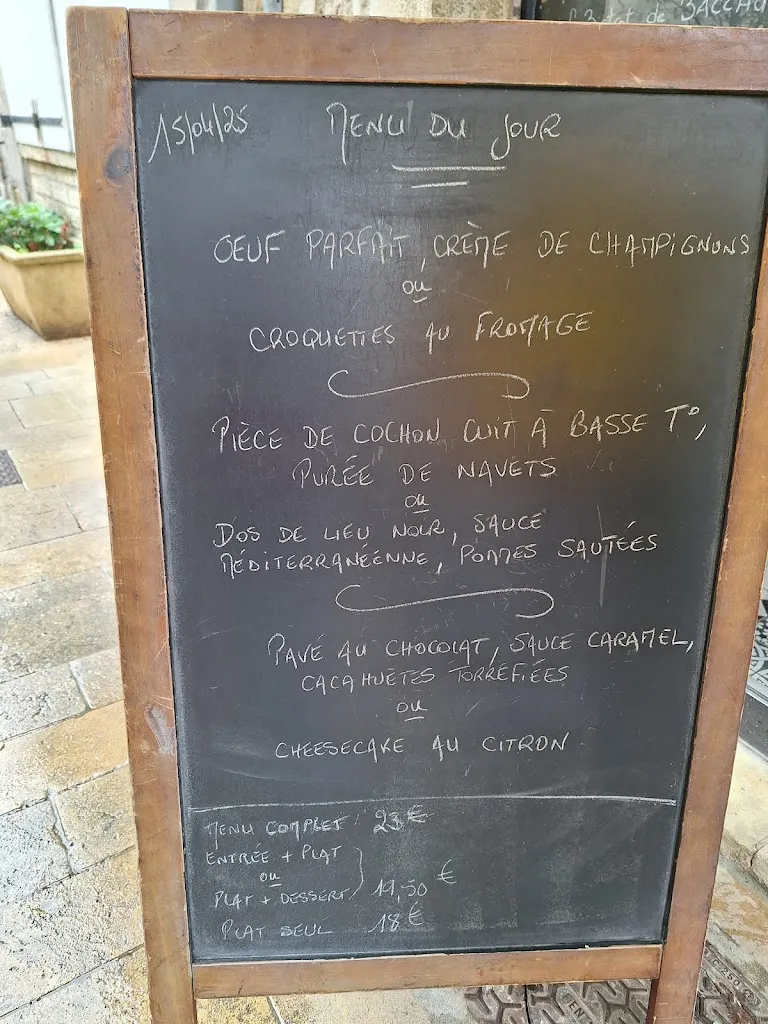 15/04/25 MENU DU JOUR
OEUF PARFAIT, CRÈME DE CHAMPIGNONS
ou
CROQUETTES AU FROMAGE
PIÈCE DE COCHON CUIT À BASSE T°,
PURÉE DE NAVETS
ou
DOS DE LIEU NOIR, SAUCE
MÉDITERRANEÉNNE, POMMES SAUTÉES
PAVÉ AU CHOCOLAT, SAUCE CARAMEL,
CACAHUETES TORREFIÉES
ou
CHEESECAKE AU CITRON
MENU COMPLET: 23€
ENTRÉE + PLAT
ou
PLAT + DESSERT 19,50 €
PLAT SEUL 18€